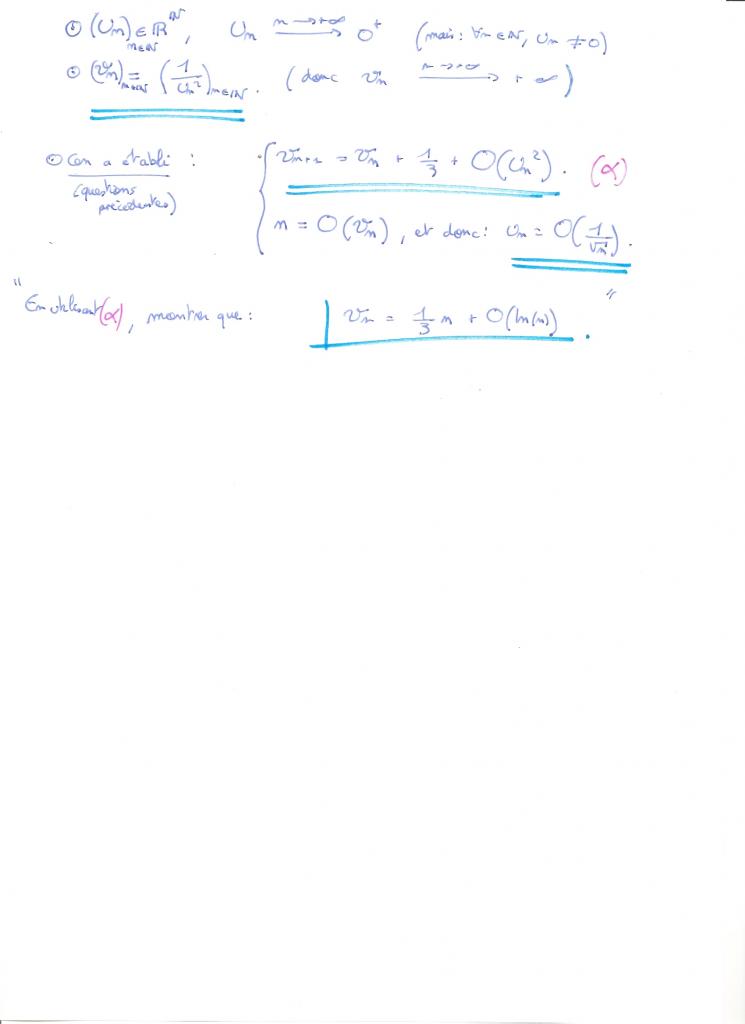 ⊙ (Un)n∈ℕ ∈ ℝ^ℕ, Un —n→+∞→ 0⁺ (mais: ∀n∈ℕ, Un ≠ 0)
⊙ (Vn)n∈ℕ = (1/Un²)n∈ℕ. (donc Vn —n→+∞→ +∞)
⊙ On a établi : { Vn+1 = Vn + 1/3 + O(Un²). (α)
(questions précédentes) n = O(Vn), et donc: Un = O(1/√n).
" En utilisant (α), montrer que : Vn = 1/3 n + O(ln(n)). "